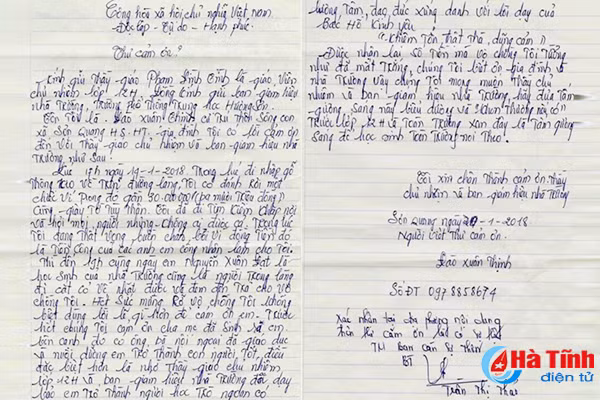 Cộng hòa xã hội chủ nghĩa Việt Nam
Độc lập - Tự do - Hạnh phúc
Thư cảm ơn
Kính gửi thầy giáo Phạm Đình Bình là giáo viên
chủ nhiệm lớp 12H, Đồng kính gửi ban giám hiệu
nhà trường, trường phổ thông trung học Hương Sơn.
Tên tôi là: Đào Xuân Thịnh cư trú thôn Sông con
xã Sơn Quang H.S-HT, gia đình tôi có lời cảm ơn
đến với thầy giáo chủ nhiệm và ban giám hiệu
nhà trường như sau:
Lúc 17h ngày 19-1-2018 Trong lúc đi nhập gỗ
thông keo về trên đường làng, tôi có đánh rơi một
chiếc ví trong đó gần 30.000.000đ (ba mươi triệu đồng)
cùng giấy tờ tùy thân. Tôi đã đi tìm kiếm khắp nơi
và hỏi mọi người nhưng không ai được cả. Trong lúc
tôi đang thất vọng buồn chán, bởi vì đồng tiền đó
là tiền công của các anh em công nhân làm cho tôi.
Thì đến 19h cùng ngày em Nguyễn Xuân Đạt là
học sinh của nhà trường cũng là người trong làng
đi cắt cỏ về nhặt được và đem đến trả cho vợ
chồng tôi. Hết sức mừng rỡ vợ chồng tôi không
biết dùng lời lẽ gì hơn để cảm ơn em. Trước
hết chúng tôi cảm ơn cha mẹ đã sinh ra em
bên cạnh đó có ông, bà nội ngoại đã giáo dục
và nuôi dưỡng em trở thành con người tốt, điều
đặc biệt hơn là nhờ thầy giáo chủ nhiệm
lớp 12H và ban giám hiệu nhà trường đã dạy
bảo em trở thành người học trò ngoan có
lương tâm, đạo đức xứng danh với lời dạy của
Bác Hồ kính yêu
"Khiêm tốn thật thà, dũng cảm"
Được nhận lại số tiền mà vợ chồng tôi tưởng
như đã mất trắng, chúng tôi biết ơn gia đình và
nhà trường vậy chúng tôi mong muốn thầy chủ
nhiệm và ban giám hiệu nhà trường hãy đưa tấm
gương sáng này biểu dương và khen thưởng này có
trước lớp 12H và toàn trường xem đây là tấm gương
sáng để học sinh toàn trường noi theo.
Tôi xin chân thành cảm ơn thầy
chủ nhiệm và ban giám hiệu nhà trường
Sơn Quang ngày 20-1-2018
Người viết thư cảm ơn
Đào Xuân Thịnh
Số ĐT 0978858674
Xác nhận tại địa phương nội dung
TM ban cán sự thôn
BT
Trần Thị Thơ
Hà Tĩnh
điện tử